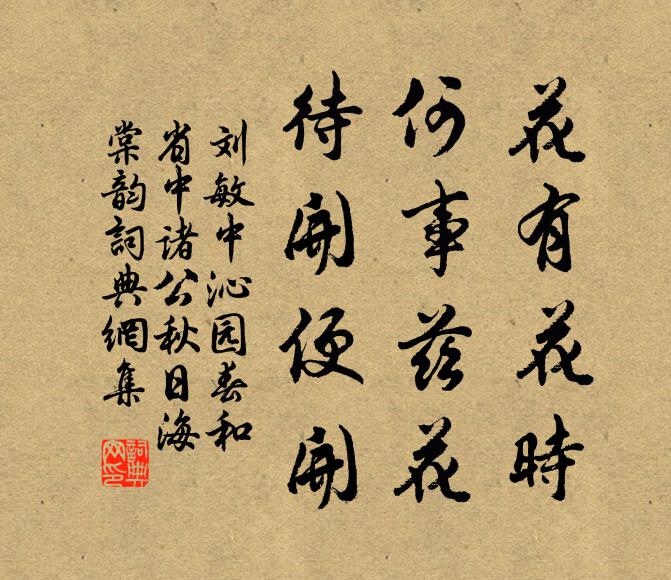 花有花時
何事兹花
待開便開
刘敏中沁园春和
省中诸公秋日海
棠韵詞典網集
詞典
网印